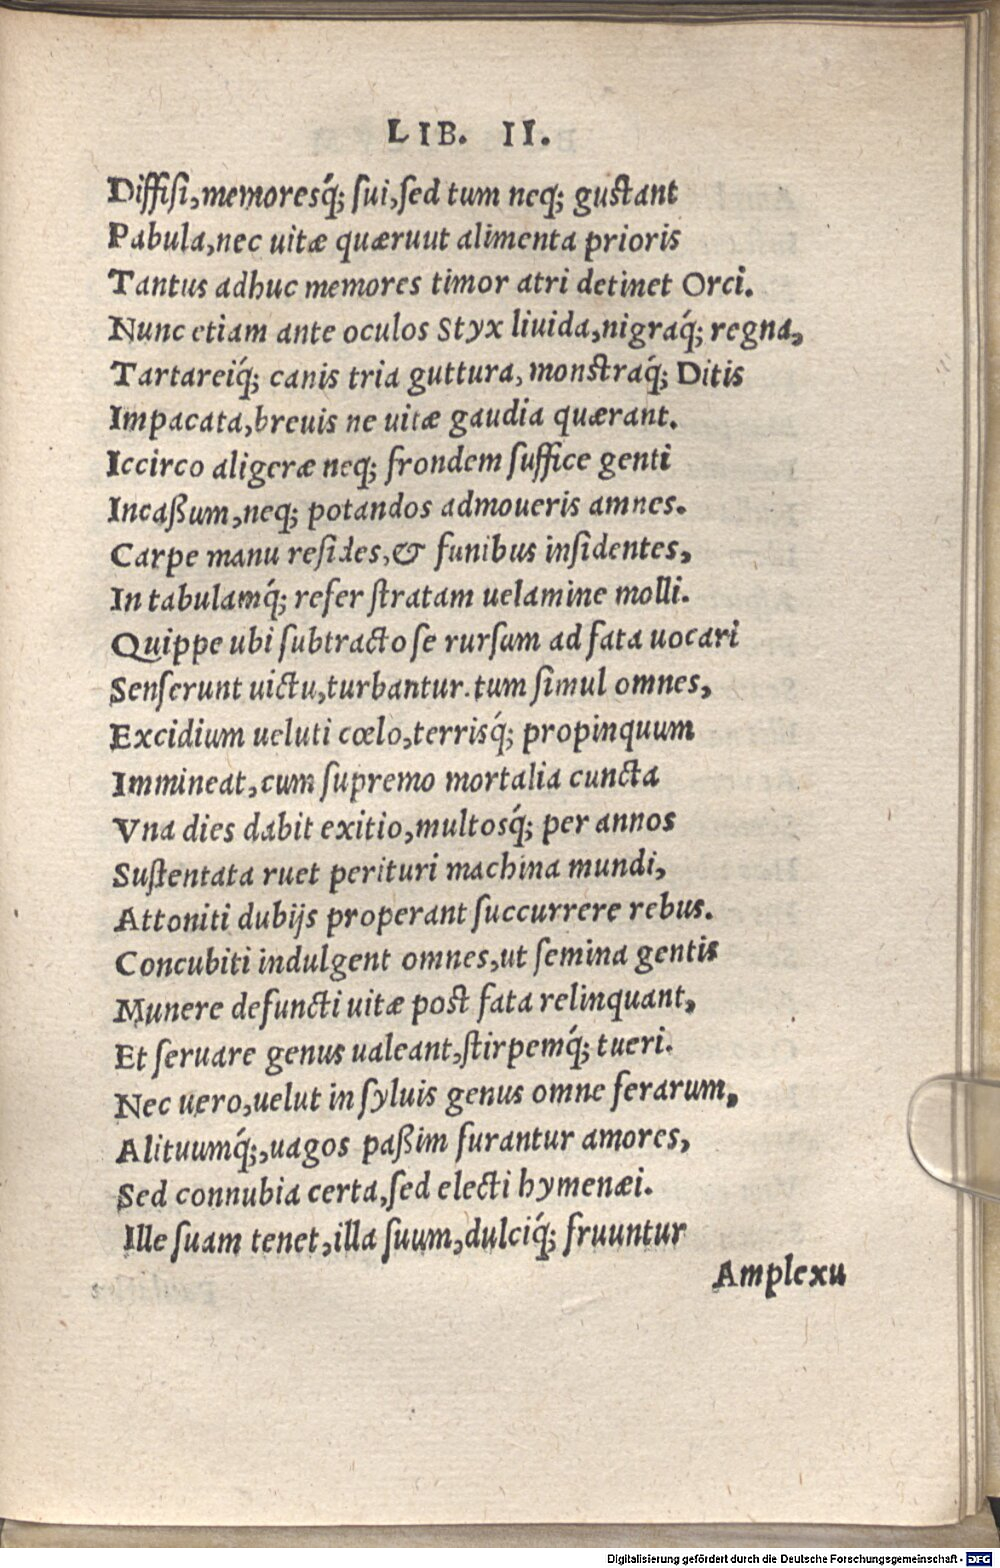 LIB. II.
Diffisi, memoresq́; sui, sed tum neq; gustant
Pabula, nec uitæ quæruut alimenta prioris
Tantus adhuc memores timor atri detinet Orci.
Nunc etiam ante oculos Styx liuida, nigraq́; regna,
Tartareiq́; canis tria guttura, monstraq́; Ditis
Impacata, breuis ne uitæ gaudia quærant.
Iccirco aligeræ neq; frondem suffice genti
Incaßum, neq; potandos admoueris amnes.
Carpe manu resides, & funibus insidentes,
In tabulamq́; refer stratam uelamine molli.
Quippe ubi subtracto se rursum ad fata uocari
Senserunt uictu, turbantur. tum simul omnes,
Excidium ueluti cœlo, terrisq́; propinquum
Immineat, cum supremo mortalia cuncta
Vna dies dabit exitio, multosq́; per annos
Sustentata ruet perituri machina mundi,
Attoniti dubijs properant succurrere rebus.
Concubiti indulgent omnes, ut semina gentis
Munere defuncti uitæ post fata relinquant,
Et seruare genus ualeant, stirpemq́; tueri.
Nec uero, uelut in syluis genus omne ferarum,
Alituumq́;, uagos paßim furantur amores,
Sed connubia certa, sed electi hymenæi.
Ille suam tenet, illa suum, dulciq́; fruuntur
Amplexu
Digitalisierung gefördert durch die Deutsche Forschungsgemeinschaft - DFG